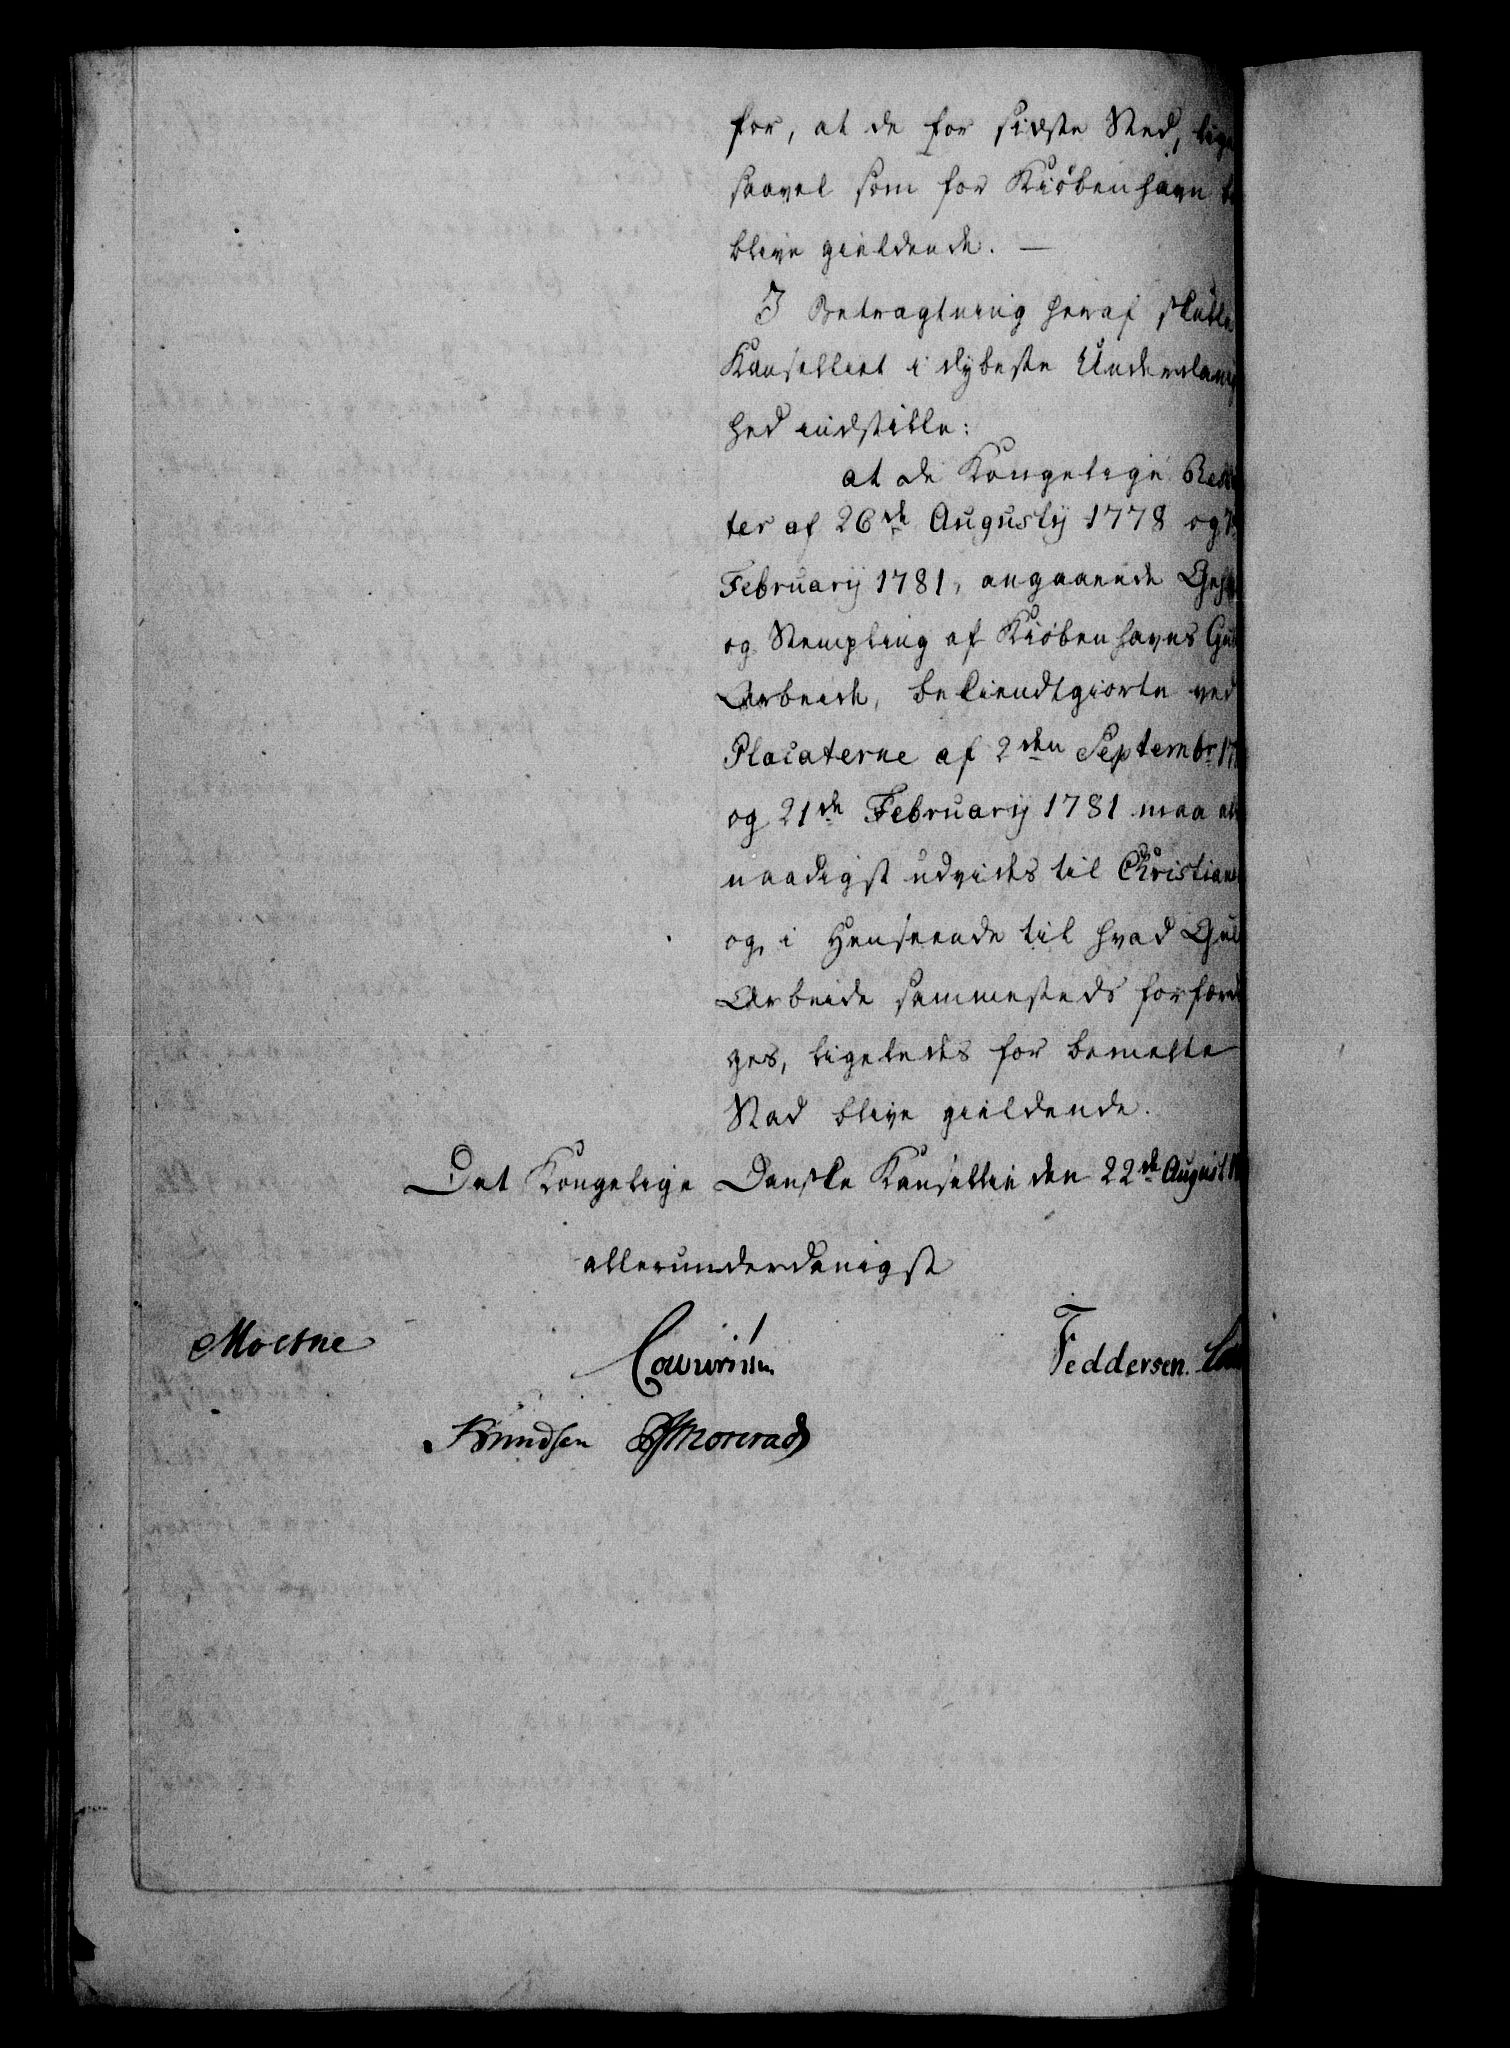 for, at de for sidste Sted, lige
saavel som for Kiöbenhavn
blive gieldende. —
I Betragtning heraf skulle
Kanselliet i dybeste Underdanig
hed indstille:
at de Kongelige
ter af 26de Augustij 1778 og
Februarij 1781, angaaende
og Stempling af Kiöbenhavns
Arbeide, bekiendtgiorte ved
Placaterne af 2den Septembr
og 21de Februarij 1781 maa
naadigst udvides til
og, i Henseende til hvad
Arbeide sammesteds
ges, ligeledes for bemelte
Stad blive gieldende.
Det Kongelige Danske Kansellie den 22de August
allerunderdanigst
Moesne Lauurissen Feddersen.
Knudsen Monrad